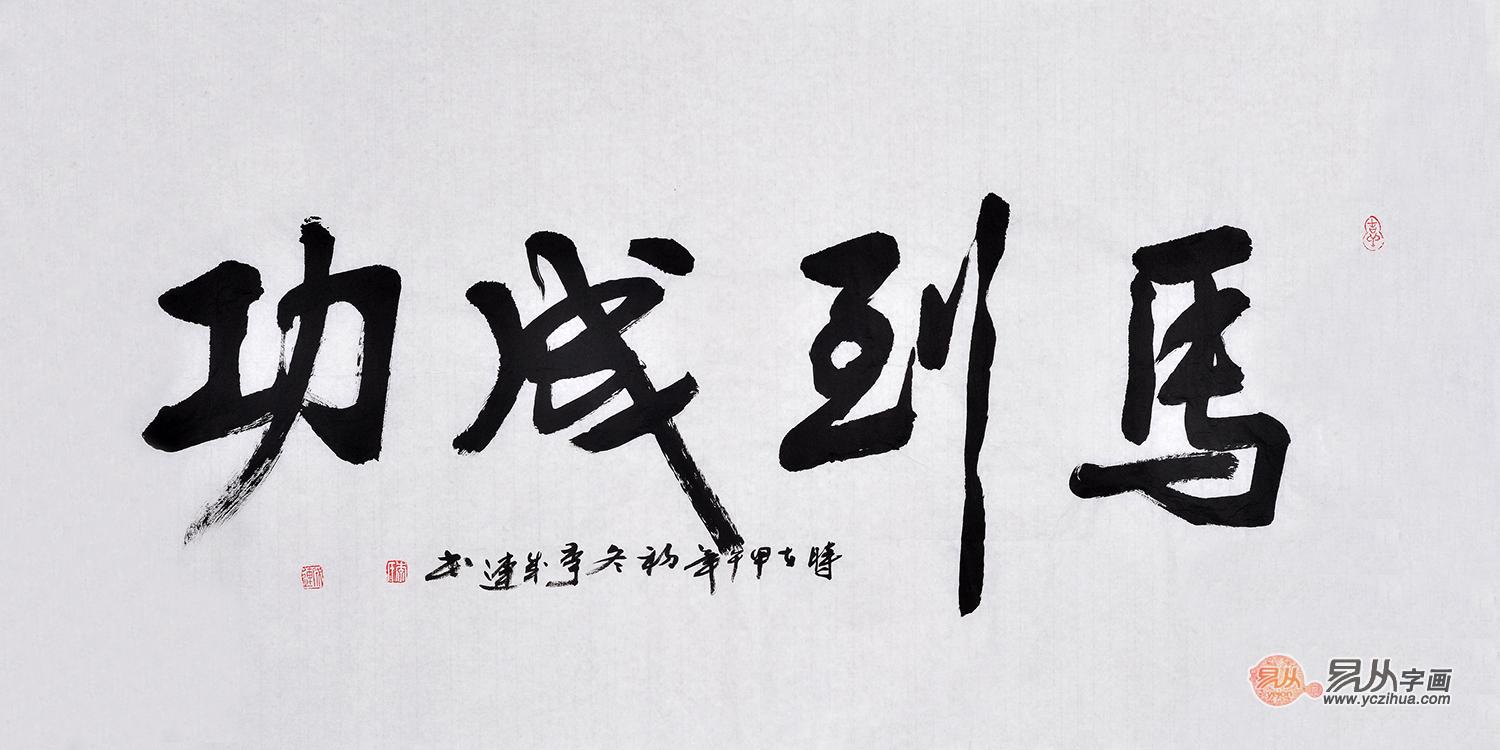 馬到成功
時在甲午年初冬李成連书
易从
yicon
易从字画
www.yczihua.com